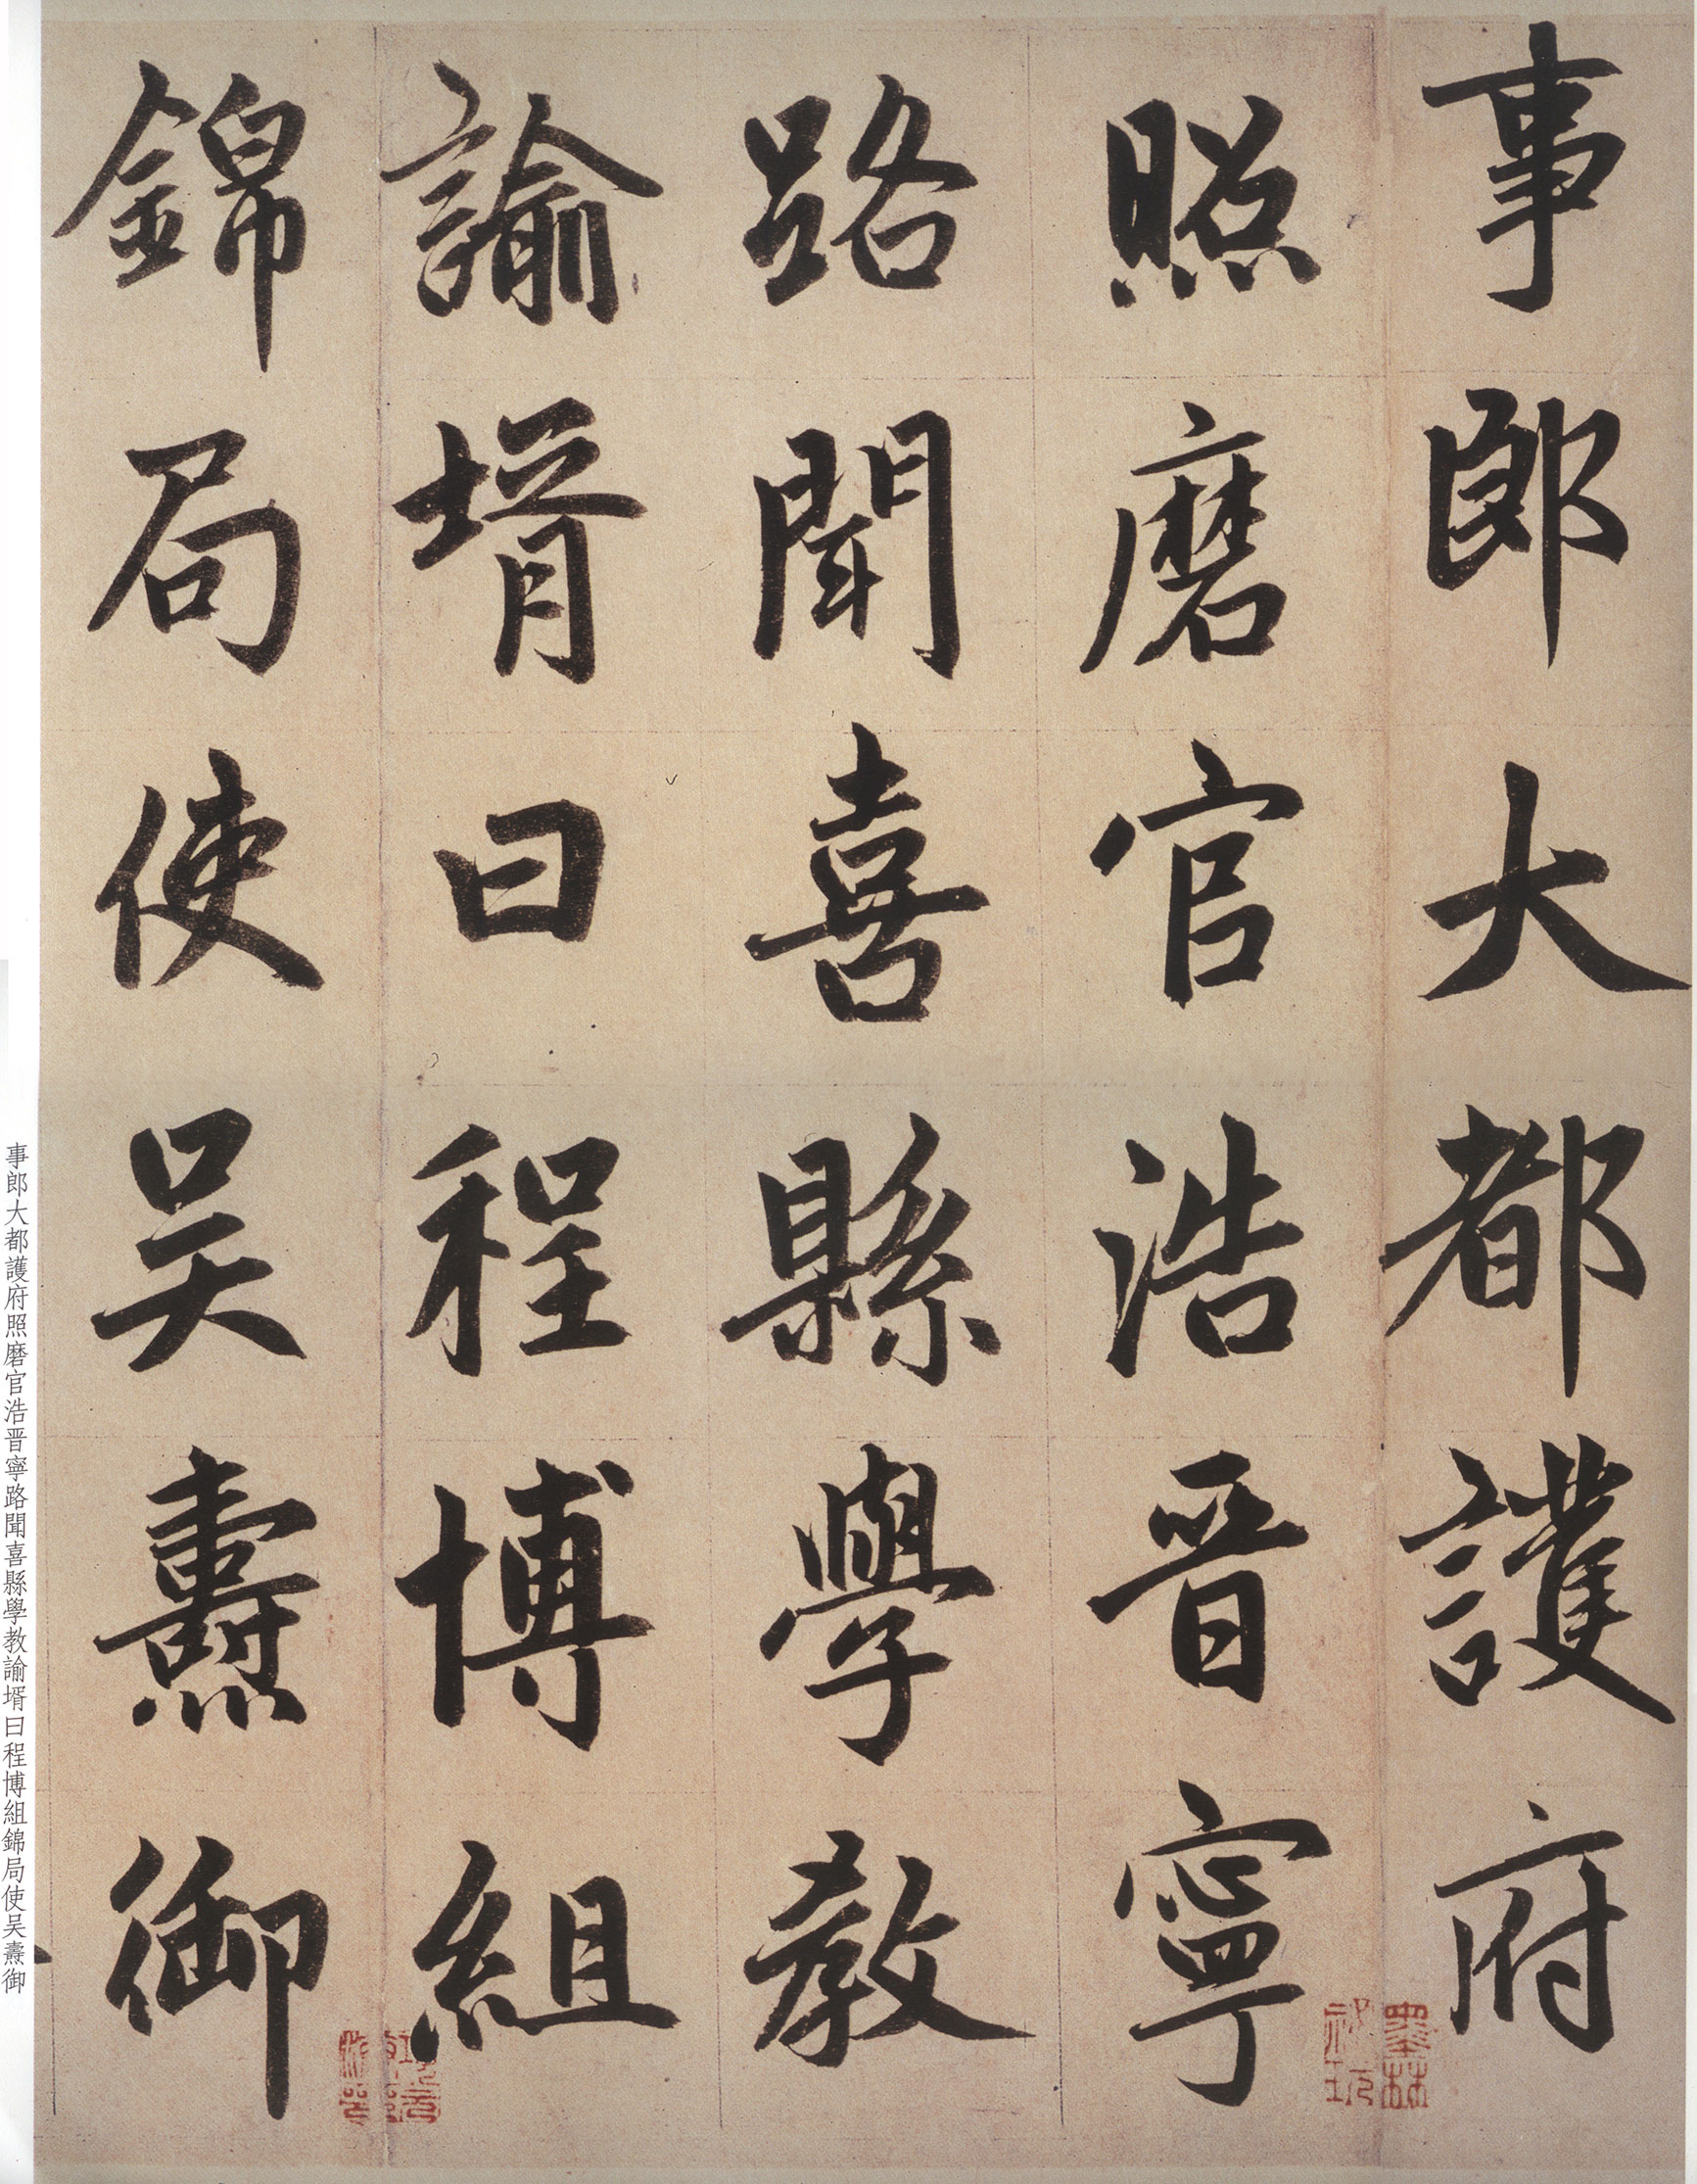 事郎大都護府
照磨官浩晋寧
路聞喜縣學教
諭壻曰程博組
錦局使吴燾御
事郎大都護府照磨官浩晋寧路聞喜縣學教諭壻曰程博組錦局使吴燾御
墨林
祕玩